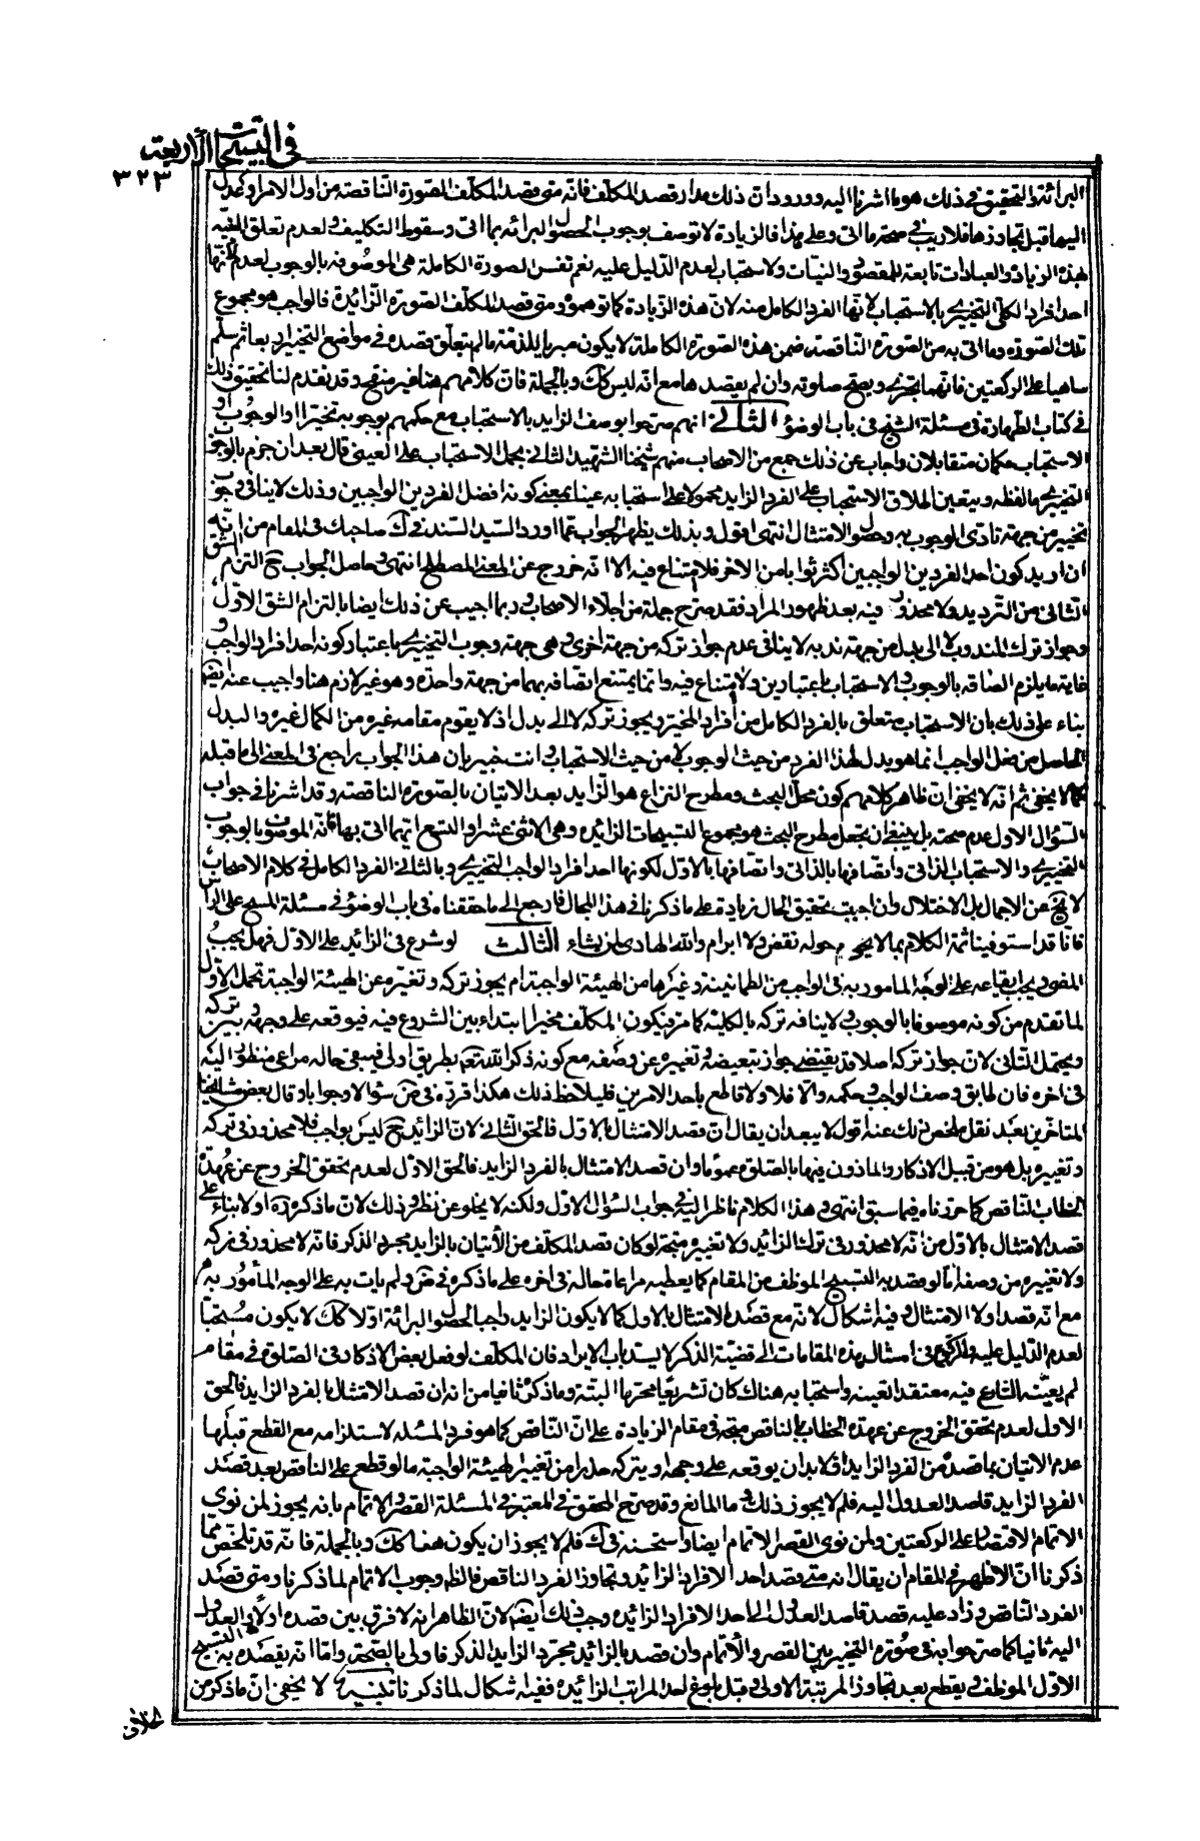 في التسبيحات الأربعة
٣٢٣
البرائة والتحقيق في ذلك هو ما اشرنا اليه وورود ان ذلك مدار قصد المكلف فانه متى قصد المكلف الصورة الناقصة من اول الامر او عدل
اليها قبل تجاوزها فلا ريب في صحة ما اتى وعلى هذا فالزيادة لا توصف بوجوب لحصول البرائه بما اتى وسقوط التكليف ولعدم تعلق النية
بهذه الزيادة والعبادات تابعة للمقصود والنيات ولا استحباب لعدم الدليل عليه نعم نفس الصورة الكاملة هي الموصوفه بالوجوب لعدم لانها
احد افراد الكلي التخييري بالاستحباب لانها الفرد الكامل منه لان هذه الزيادة كما توهموه ومتى قصد المكلف الصورة الزائدة فالواجب هو مجموع
تلك الصورة وما اتى به من الصورة الناقصة ضمن هذه الصورة الكاملة لا يكون مبريا للذمة ما لم يتعلق قصده في مواضع التخيير اربعا ثم سلم
ساهيا على الركعتين فانهما تجزي ويصح صلوته وان لم يقصدها مع انه ليس كك وبالجملة فان كلامهم هنا غير منقح وقد تقدم لنا تحقيق ذلك
في كتاب الطهارة في مسئلة المسح في باب الوضوء الثاني انهم صرحوا بوصف الزايد بالاستحباب مع حكمهم بوجوبه تخييرا والوجوب و
الاستحباب حكمان متقابلان واجاب عن ذلك جمع من الاصحاب منهم شيخنا الشهيد الثاني بحمل الاستحباب على العيني قال بعد ان جزم بالوجوب
التخييري ما لفظه ويتعين اطلاق الاستحباب على الفرد الزايد محمولا على استحبابه عينا بمعنى كونه افضل الفردين الواجبين وذلك لا ينافي وجوبه
تخييرا من جهة تادي الوجوب به وحصول الامتثال انتهى اقول وبذلك يظهر الجواب عما اورده السيد السند في ك صاحبك في المقام من انه
ان اريد كون احد الفردين الواجبين اكثر ثوابا من الاخر فلا امتناع فيه الا انه خروج عن المعنى المصطلح انتهى وحاصل الجواب ح التزام الشق
الثاني من الترديد ولا محذور فيه بعد ظهور المراد فقد صرح جملة من اجلاء الاصحاب وربما اجيب عن ذلك ايضا بالتزام الشق الاول
وجواز ترك المندوب لا الى بدل من جهة ندبه لا ينافي عدم جواز تركه من جهة اخرى وهي جهة وجوب التخييري باعتبار كونه احد افراد الواجب و
غاية ما يلزم اتصافه بالوجوب والاستحباب باعتبارين ولا امتناع فيه وانما يمتنع اتصافه بهما من جهة واحدة وهو غير لازم هنا واجيب عنه ايضا
بناء على ذلك بان الاستحباب متعلق بالفرد الكامل من افراد المخير ويجوز تركه لا الى بدل اذ لا يقوم مقامه غيره من الكمال غيره والبدل
الحاصل من فعل الواجب انما هو بدل لهذا الفرد من حيث الوجوب لا من حيث الاستحباب وانت خبير بان هذا الجواب راجع في المعنى الى ما قبله
كما لا يخفى ثم انه لا يخفى ان ظاهر كلامهم كون محل البحث ومطرح النزاع هو الزايد بعد الاتيان بالصورة الناقصة وقد اشرنا في جواب
السؤال الاول عدم صحته بل ينبغي ان يجعل مطرح البحث هو مجموع التسبيحات الزائدة وهي الاثنى عشر او التسع ايتهما اتى بها فانه الموصوف بالوجوب
التخييري والاستحباب الذاتي واتصافها بالذاتي واتصافها بالاول لكونها احد افراد الواجب التخييري وبالثاني الفرد الكامل في كلام الاصحاب
لا يخ عن الاجمال بل الاختلال وان احببت تحقيق الحال زيادة على ما ذكرنا في هذا المجال فارجع الى ما حققناه في باب الوضوء في مسئلة المسح على الراس
فانا قد استوفينا ثمة الكلام بما لا يحوم حوله نقض ولا ابرام والله الهادي لمن يشاء الثالث لو شرع في الزائد على الاول فهل يجب
المضي ويجب ايقاعه على الوجه المامور به في الواجب من الطمانينة وغيرها من الهيئة الواجبة ام يجوز تركه وتغيره عن الهيئة الواجبة يحتمل الاول
لما تقدم من كونه موصوفا بالوجوب ولا ينافيه تركه بالكلية كما مر فيكون المكلف مخيرا ابتداء بين الشروع فيه فيوقعه على وجهه وبين تركه
ويحتمل الثاني لان جواز تركه اصلا قد يقتضي جواز تبعيضه وتغييره عن وصفه مع كونه ذكر الله تعم بطريق اولى فيبقى حاله مراعى منظورا اليه
في اخره فان طابق وصف الواجب حكمه والا فلا ولا قاطع باحد الامرين فليلاحظ ذلك هكذا قرره في ض سؤالا وجوابا وقال بعض مشايخنا
المتاخرين بعد نقل ملخص ذلك عنه اقول لا يبعد ان يقال ان قصد الامتثال بالاول فالحق الثاني لان الزائد ح ليس بواجب فلا محذور في تركه
وتغييره بل هو من قبيل الاذكار والماذون فيها بالصلوة عموما وان قصد الامتثال بالفرد الزايد فالحق الاول لعدم تحقق الخروج عن عهدة
الخطاب الناقص كما حررناه فيما سبق انتهى وهذا الكلام ناظر اليه في جواب السؤال الاول ولكنه لا يخلو عن نظر وذلك لان ما ذكره اولا بناء على
قصد الامتثال بالاول من انه لا محذور في ترك الزائد ولا تغييره متجه لو كان قصد المكلف من الاتيان بالزايد مجرد الذكر فانه لا محذور في تركه
ولا تغييره من وصفه اما لو قصد به التسبيح الموظف من المقام كما يعطيه مراعاة حاله في اخره على ما ذكره في ض ولم يات به على الوجه المأمور به
مع انه قصد اولا الامتثال وفيه اشكال لانه مع قصده الامتثال بالاول كما لا يكون الزايد واجبا لحصول البرائة اولا كك لا يكون مستحبا
لعدم الدليل عليه والركون في امثال هذه المقامات الى قضية الذكر لا يسد باب الايراد فان المكلف لو فعل بعض الاذكار في الصلوة في مقام
لم يعينه الشارع فيه معتقد العينه واستحبابه هناك كان تشريعا محرما البتة وما ذكره ثانيا من انه ان قصد الامتثال بالفرد الزايد فالحق
الاول لعدم تحقق الخروج عن عهدة الخطاب بالناقص متجه في مقام الزيادة على ان الناقص كما هو فرد المسئلة لاستلزامه مع القطع قبلها
عدم الاتيان بما قصده من الفرد الزايد اذ لا بد ان يوقعه على وجهه او يتركه حذرا من تغيير الهيئة الواجبة اما لو قطع على الناقص بعد قصد
الفرد الزايد قاصد العدول اليه فلم لا يجوز ذلك وما المانع وقد صرح المحقق في المعتبر في المسئلة القصر والاتمام بانه يجوز لمن نوى
الاتمام الاقتصار على الركعتين ولمن نوى القصر الاتمام ايضا واستحسنه في ك فلم لا يجوز ان يكون هنا كك وبالجملة فانه قد تلخص مما
ذكرنا ان الاظهر في المقام ان يقال انه متى قصد احد الافراد الزائد وتجاوز الفرد الناقص فالظ وجوب الاتمام لما ذكرنا ومتى قصد
الفرد الناقص وزاد عليه قصد قاصد العدول الى احد الافراد الزائده وجب ذلك ايضا لان الظاهر انه لا فرق بين قصده اولا والعدول
اليه ثانيا كما صرحوا به في صورة التخيير بين القصر والاتمام وان قصد بالزائد مجرد الزايد الذكر فاولى بالصحة واما انه يقصد به التسبيح
الاول الموظف ويقطع بعد تجاوز المرتبة الاولى وقبل بلوغ احد المراتب الزائده ففيه اشكال لما ذكرنا تنبيه لا يخفى ان ما ذكر من
خلاف